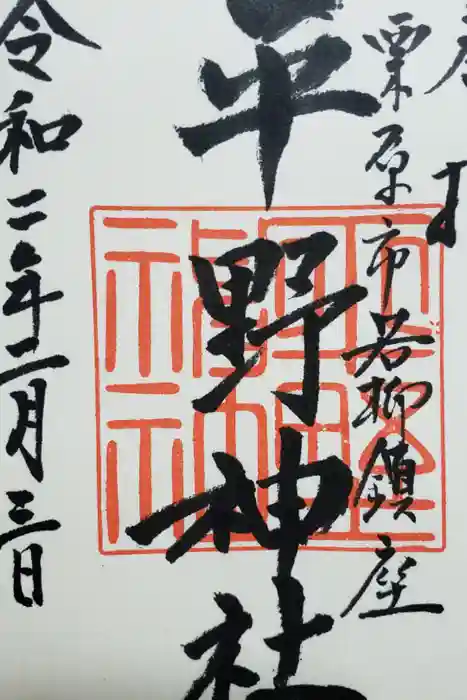 奉拝
栗原市若柳鎮座
平野神社
令和二年二月三日